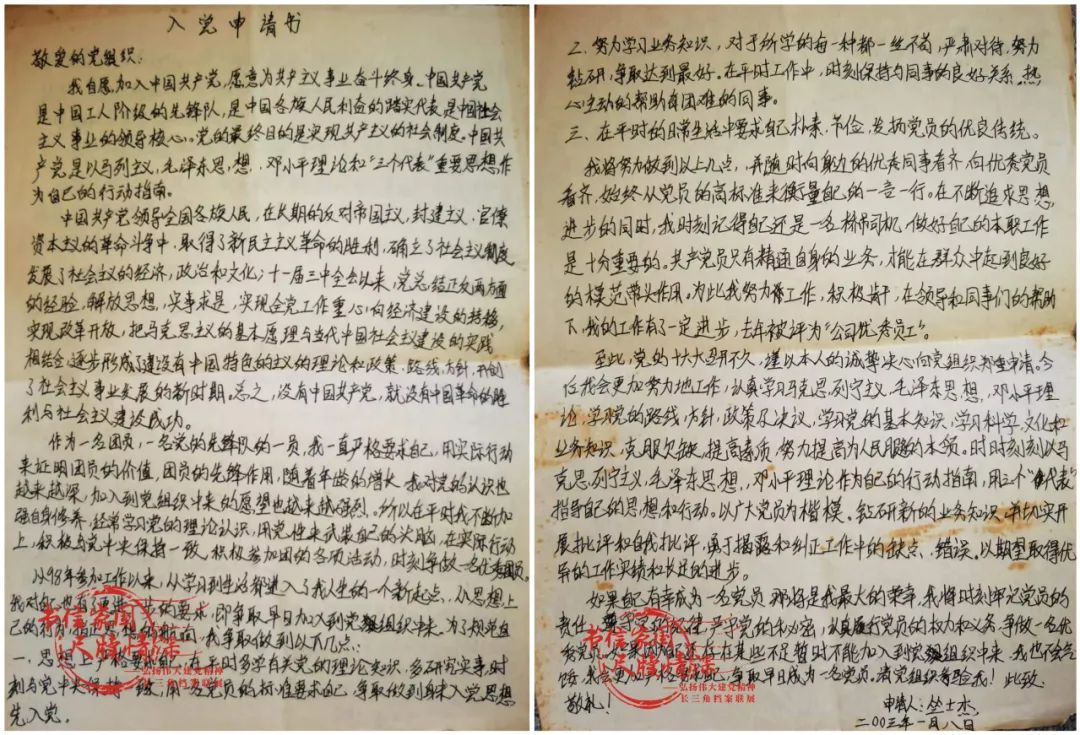 入党申请书
敬爱的党组织:
我自愿加入中国共产党,愿意为共产主义事业奋斗终身。中国共产党
是中国工人阶级的先锋队,是中国各族人民利益的踏实代表,是中国社会
主义事业的领导核心。党的最终目的是实现共产主义的社会制度。中国共
产党是以马列主义,毛泽东思想,邓小平理论和“三个代表”重要思想,作
为自己的行动指南。
中国共产党领导全国各族人民,在长期的反对帝国主义,封建主义,官僚
资本主义的革命斗争中,取得了新民主主义革命的胜利,确立了社会主义制度,
发展了社会主义的经济,政治和文化;十一届三中全会以来,党总结正反两方面
的经验,解放思想,实事求是,实现全党工作重心向经济建设的转移,
实现改革开放,把马克思主义的基本原理与当代中国社会主义建设的实践
相结合,逐步形成了建设有中国特色的主义的理论和政策,路线,方针,开创
了社会主义事业发展的新时期。总之,没有中国共产党,就没有中国革命的胜
利与社会主义建设成功。
作为一名团员,一名党的先锋队的一员,我一直严格要求自己,用实际行动
来证明团员的价值,团员的先锋作用,随着年龄的增长,我对党的认识也
越来越深,加入到党组织中来的愿望也越来越强烈。所以在平时我不断加
强自身修养,经常学习党的理论认识,用党性来武装自己的头脑,在实际行动
上,积极与党中央保持一致,积极参加团的各项活动,时刻争做一名优秀团员。
从98年参加工作以来,从学习到生活都进入了我人生的一个新起点,从思想上
我对自己也有了更进一步的要求,即争取早日加入到党组织中来。为了规范自
己的行为 我争取做到以下几点:
一,思想上严格要求自己,在平时多学有关党的理论知识,多研究实事,时
刻与党中央保持一致,用一名党员的标准要求自己,争取做到身未入党思想
先入党。
二,努力学习业务知识,对于所学的每一种都一丝不苟,严肃对待,努力
钻研,争取达到最好。在平时工作中,时刻保持与同事的良好关系,热
心主动的帮助有困难的同事。
三,在平时的日常生活中要求自己朴素,节俭,发扬党员的优良传统。
我将努力做到以上几点,并随时向身边的优秀同事看齐,向优秀党员
看齐,始终从党员的高标准来衡量自己的一言一行。在不断追求思想
进步的同时,我时刻记得自己还是一名桥吊司机,做好自己的本职工作
是十分重要的。共产党员只有精通自身的业务,才能在群众中起到良好
的模范带头作用,为此我努力工作,积极肯干,在领导和同事们的帮助
下,我的工作有了一定进步,去年被评为“公司优秀员工”。
至此,党的十六大召开不久,谨以本人的诚挚决心向党组织郑重申请,今
后我会更加努力地工作,认真学习马克思列宁主义,毛泽东思想,邓小平理
论,学习党的路线,方针,政策及决议,学习党的基本知识,学习科学,文化和
业务知识,克服欠缺,提高素质,努力提高为人民服务的本领。时时刻刻以马
克思列宁主义,毛泽东思想,邓小平理论作为自己的行动指南,用三个“代表”
指导自己的思想和行动。以广大党员为楷模。钻研新的业务知识,并切实开
展批评和自我批评,勇于揭露和纠正工作中的缺点、错误。以期望取得优
异的工作实绩和长足的进步。
如果自己有幸成为一名党员,那将是我最大的荣幸,我将时刻牢记党员的
责任,遵守党的纪律,严守党的秘密,认真履行党员的权力和义务,争做一名优
秀党员,如果因为自己还存在某些不足暂时不能加入到党组织中来,我也不会气
馁,我会更加严格要求自己,争取早日成为一名党员。请党组织考验我!此致
敬礼!
申请人:丛士杰
二00三年一月八日
书信家国
尺牍情深
——弘扬伟大建党精神
长三角档案联展
书信家国
尺牍情深
——弘扬伟大建党精神
长三角档案联展